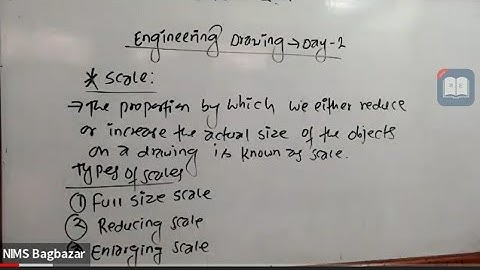 Engineering Drawing → Day-2
* Scale:
→ The proportion by which we either reduce
or increase the actual size of the objects
on a drawing is known as scale.
Types of scales
① Full size scale
② Reducing scale
③ Enlarging scale
NIMS Bagbazar